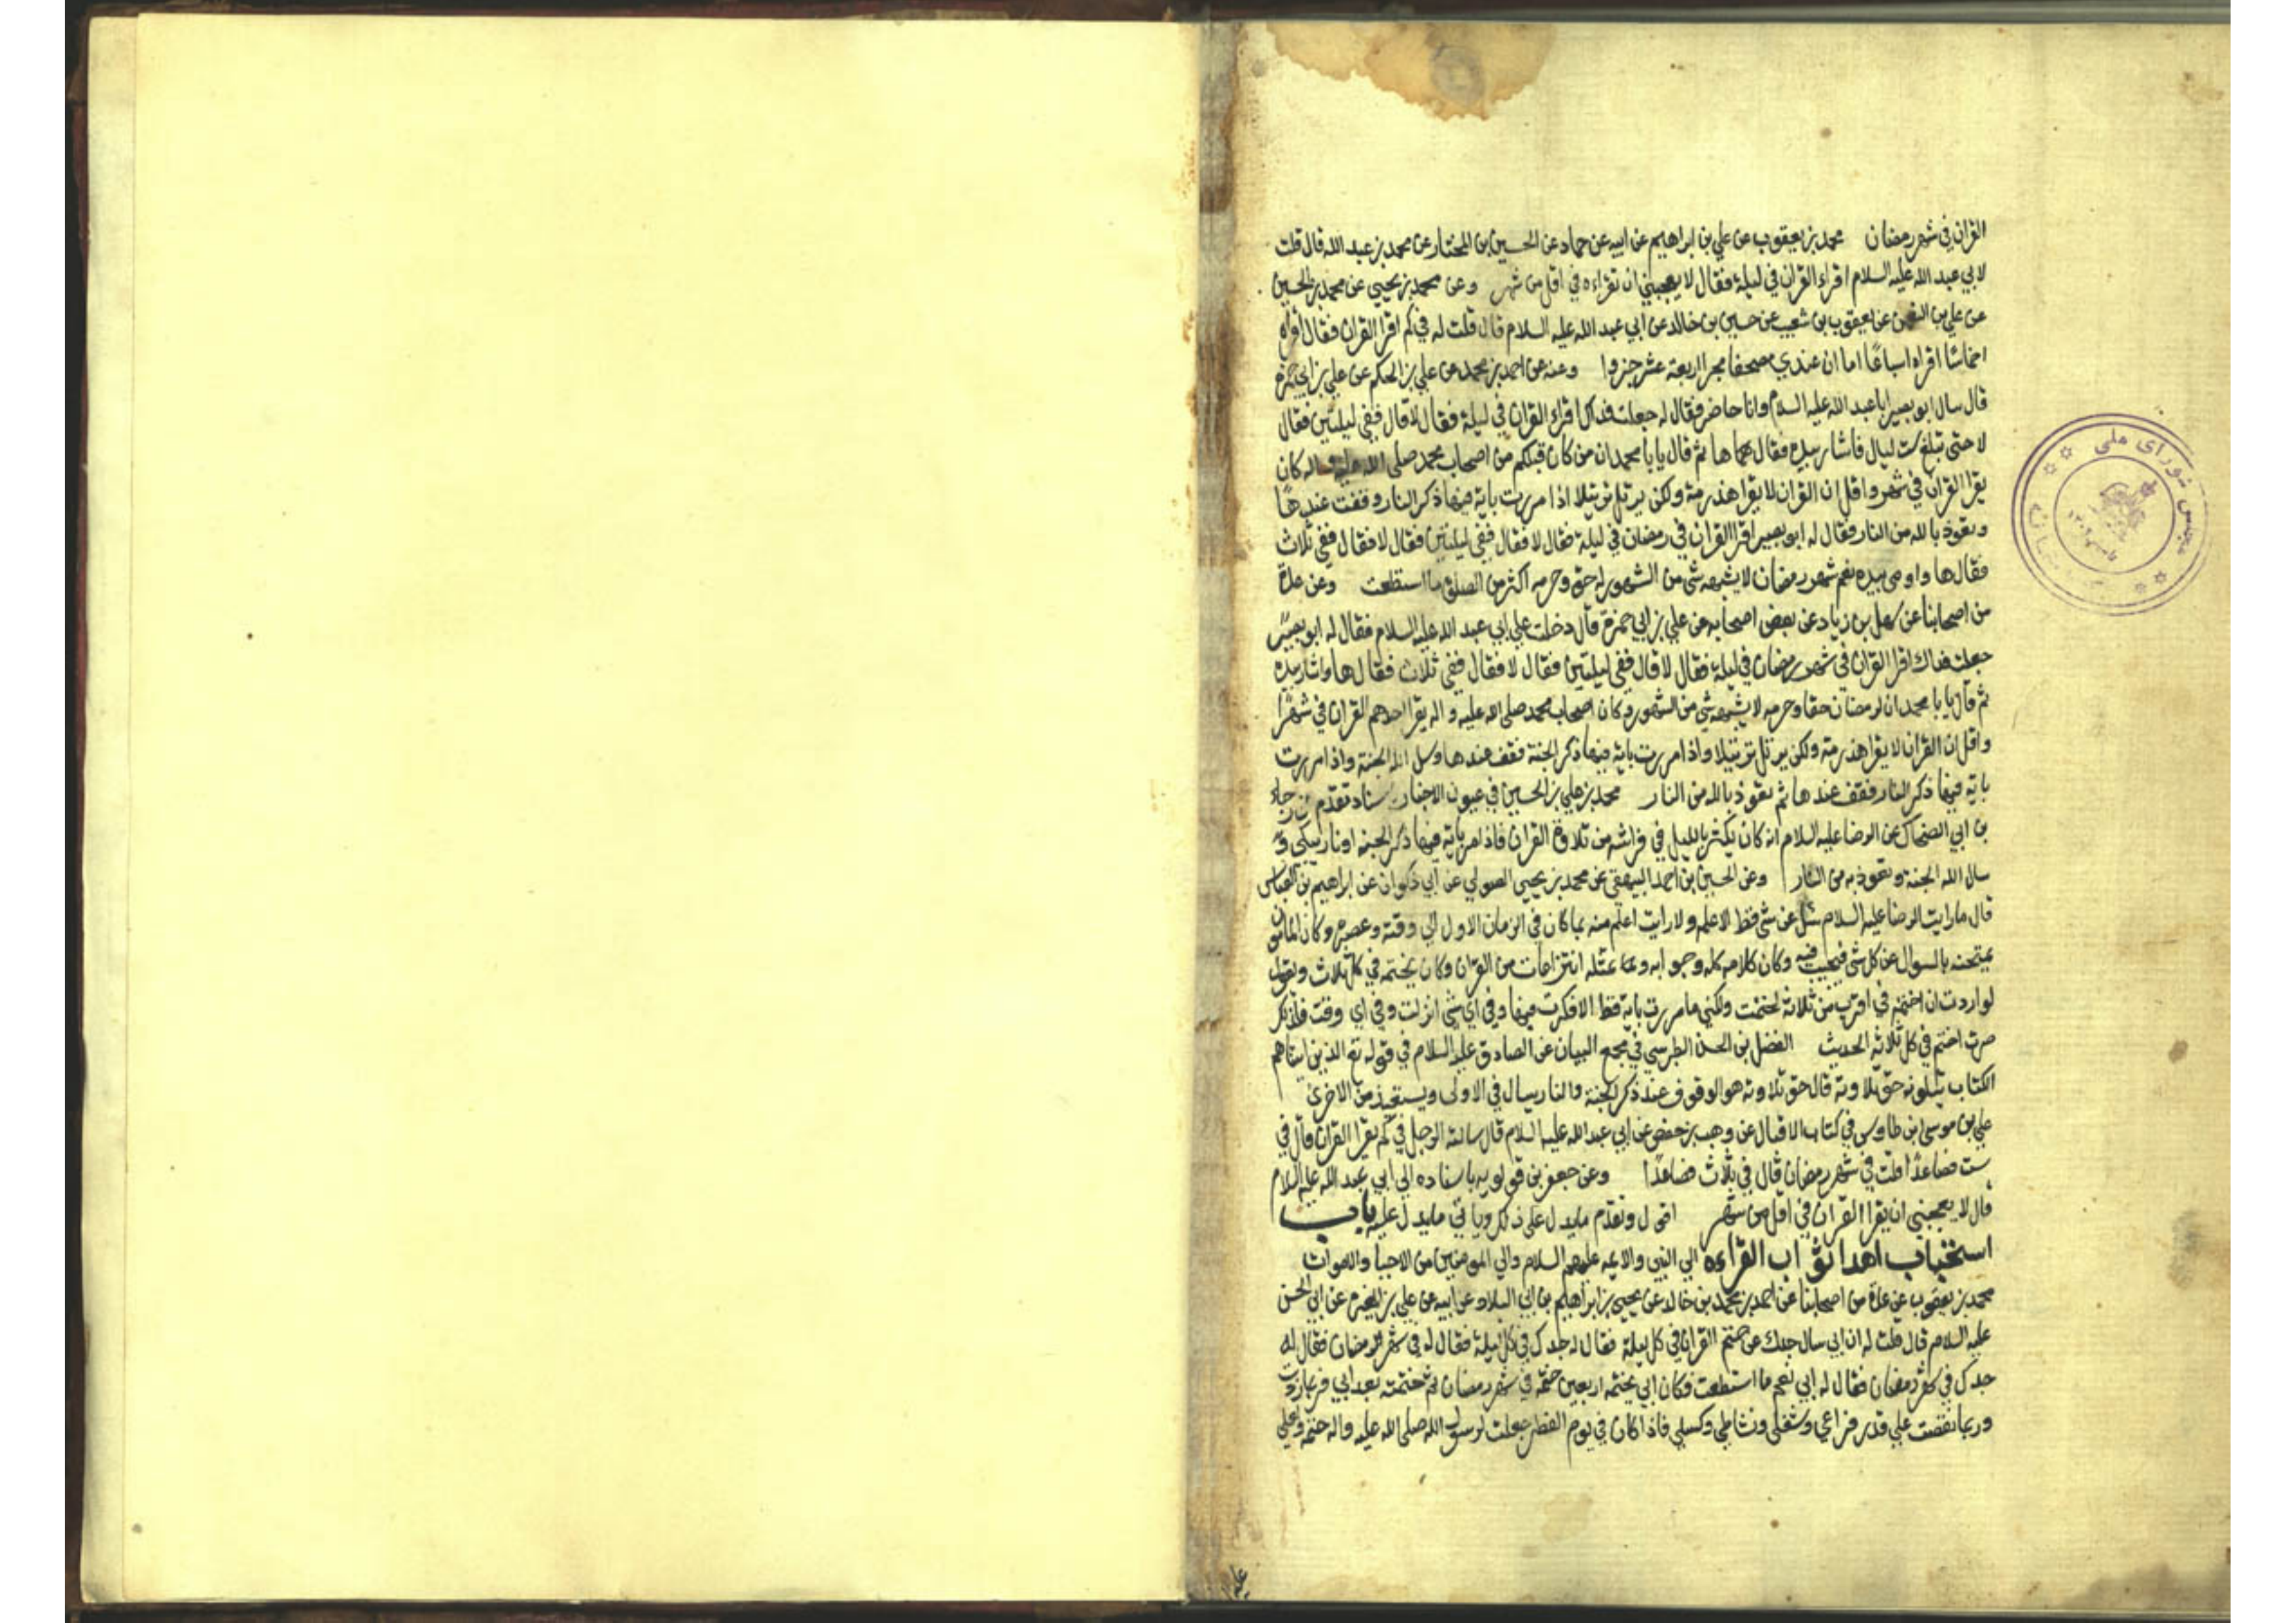 القران في شهر رمضان محمد بن يعقوب عن علي بن ابراهيم عن ابيه عن حماد عن الحسين بن المختار عن محمد بن عبد الله قال قلت
لابي عبد الله عليه السلام اقراء القران في ليلة فقال لا يعجبني ان تقراءه في اقل من شهر وعن محمد بن يحيي عن محمد بن الحسين
عن علي بن النعمن عن يعقوب بن شعيب عن حسين بن خالد عن ابي عبد الله عليه السلام قال قلت له في كم اقرا القران فقال اقراه
اخماسا اقراه اسباعا اما ان عندي مصحفا مجزا اربعة عشر جزوا وعنه عن احمد بن محمد عن علي بن الحكم عن علي بن ابي حمزه
قال سال ابو بصير ابا عبد الله عليه السلام وانا حاضر فقال له جعلت فداك اقراء القران في ليلة فقال لا قال ففي ليلتين فقال
لا حتى تبلغ ست ليال فاشار بيده فقال ها ثم قال يا با محمد ان من كان قبلكم من اصحاب محمد صلى الله عليه واله كان
يقرا القران في شهر واقل ان القران لا يقرا هذرمة ولكن يرتل ترتيلا اذا مررت باية فيها ذكر النار وقفت عندها
وتعوذ بالله من النار فقال له ابو بصير اقرا القران في رمضان في ليلة فقال لا فقال ففي ليلتين فقال لا فقال ففي ثلاث
فقال ها واومى بيده نعم شهر رمضان لا يشبهه شي من الشهور له حق وحرمه اكثر من الصلوة ما استطعت وعن عدة
من اصحابنا عن سهل بن زياد عن بعض اصحابه عن علي بن ابي حمزة قال دخلت علي ابي عبد الله عليه السلام فقال له ابو بصير
جعلت فداك اقرا القران في شهر رمضان في ليلة فقال لا قال ففي ليلتين فقال لا فقال ففي ثلاث فقال ها واشار بيده
ثم قال يا با محمد ان لرمضان حقا وحرمه لا يشبهه شي من الشهور وكان اصحاب محمد صلى الله عليه واله يقرا احدهم القران في شهر
واقل ان القران لا يقرا هذرمة ولكن يرتل ترتيلا واذا مررت باية فيها ذكر الجنة فقف عندها وسل الله الجنة واذا مررت
باية فيها ذكر النار فقف عندها ثم تعوذ بالله من النار محمد بن علي بن الحسين في عيون الاخبار تقدم عن رجاء
بن ابي الضحاك عن الرضا عليه السلام انه كان يكثر بالليل في فراشه من تلاوة القران فاذا مر باية فيها ذكر الجنه او نار بكى و
سال الله الجنة وتعوذ به من النار وعن الحسين بن احمد البيهقي عن محمد بن يحيى الصولي عن ابي ذكوان عن ابراهيم بن العباس
قال ما رايت الرضا عليه السلام سئل عن شي قط الا علمه ولا رايت اعلم منه بما كان في الزمان الاول الي وقته وعصره وكان المامون
يمتحنه بالسوال عن كل شي فيجيب فيه وكان كلامه كله وجوابه وتمثله انتزاعات من القران وكان يختمه في كل ثلاث ويقول
لو اردت ان اختمه في اقرب من ثلاثة لختمت ولكني ما مررت باية قط الا فكرت فيها وفي اي شي انزلت وفي اي وقت
صرت اختم في كل ثلاثة الحديث الفضل بن الحسن الطبرسي في مجمع البيان عن الصادق عليه السلام في قوله تع الذين اتيناهم
الكتاب يتلونه حق تلاوته قال حق تلاوته هو الوقوف عند ذكر الجنة والنار يسال في الاولى ويستعيذ من الاخرى
علي بن موسى ابن طاوس في كتاب الاقبال عن وهب بن حفص عن ابي عبد الله عليه السلام قال سالته الرجل في كم يقرا القران قال في
ست فصاعدا قلت في شهر رمضان قال في ثلاث فصاعدا وعن جعفر بن قولويه باسناده الى ابي عبد الله عليه السلام
قال لا يعجبني ان يقرا القران في اقل من شهر اقول وتقدم ما يدل على ذلك وياتي ما يدل عليه باب
استحباب اهدا ثواب القراءه الي النبي والايمه عليهم السلام والي المومنين من الاحيا والاموات
محمد بن يعقوب عن عدة من اصحابنا عن احمد بن محمد بن خالد عن يحيي بن ابراهيم بن ابي البلاد عن ابيه عن علي بن المغيره عن ابي الحسن
عليه السلام قال قلت له ان ابي سال جدك عن ختم القران في كل ليلة فقال له جدك في كل ليلة فقال له في شهر رمضان فقال له
جدك في شهر رمضان فقال له ابي نعم ما استطعت فكان ابي يختمه اربعين ختمة في شهر رمضان ثم ختمته بعد ابي فربما زدت
وربما نقصت علي قدر فراغي وشغلي ونشاطي وكسلي فاذا كان في يوم الفطر جعلت لرسول الله صلى الله عليه واله ختمة ولعلي
مجلس شورای ملی